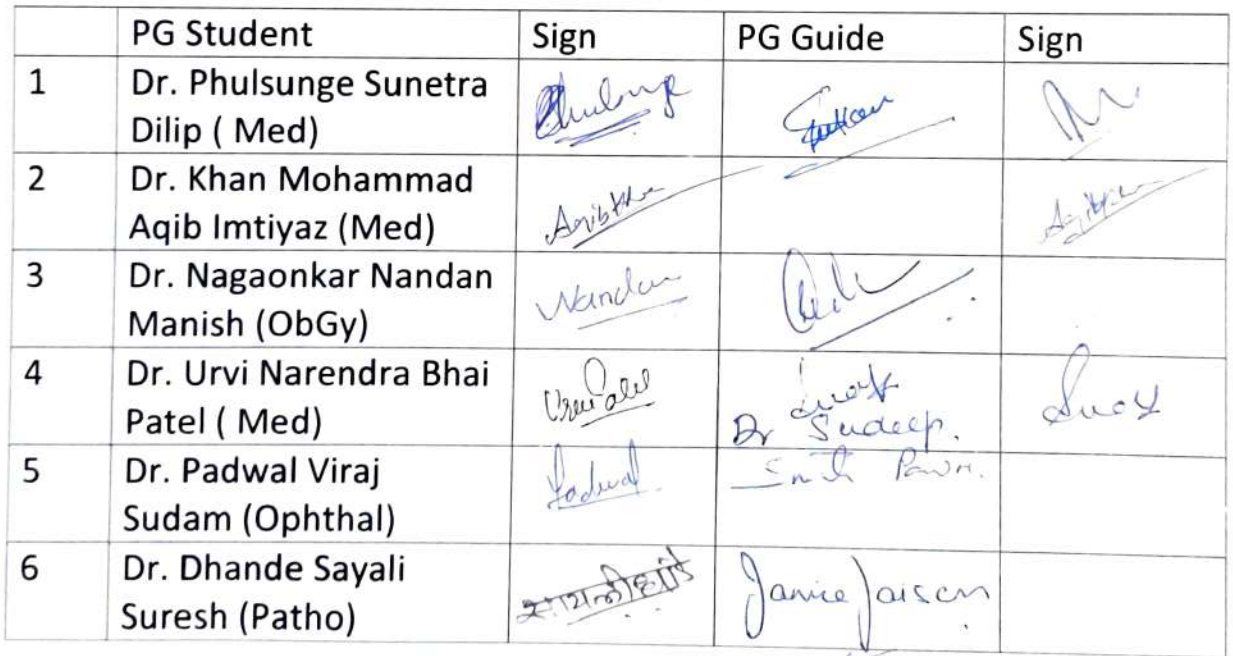 PG Student Sign PG Guide Sign
1 Dr. Phulsunge Sunetra
Dilip ( Med)
2 Dr. Khan Mohammad
Aqib Imtiyaz (Med)
3 Dr. Nagaonkar Nandan
Manish (ObGy)
Nandan
4 Dr. Urvi Narendra Bhai
Patel ( Med)
Dr Sudeep.
5 Dr. Padwal Viraj
Sudam (Ophthal)
Padwal
6 Dr. Dhande Sayali
Suresh (Patho)
Janice Jaison